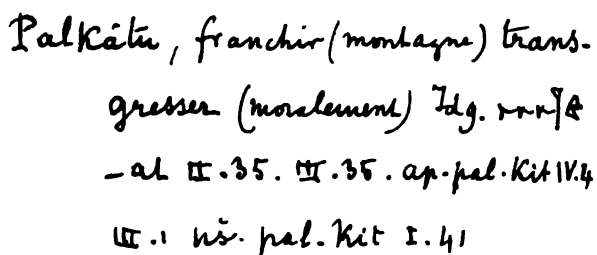 Palkâtu, franchir (montagne) trans-
gresser (moralement) Idg.
-at II.35. III.35. ap.pal.Kit IV.4
III.1 uš. pal. Kit I.41